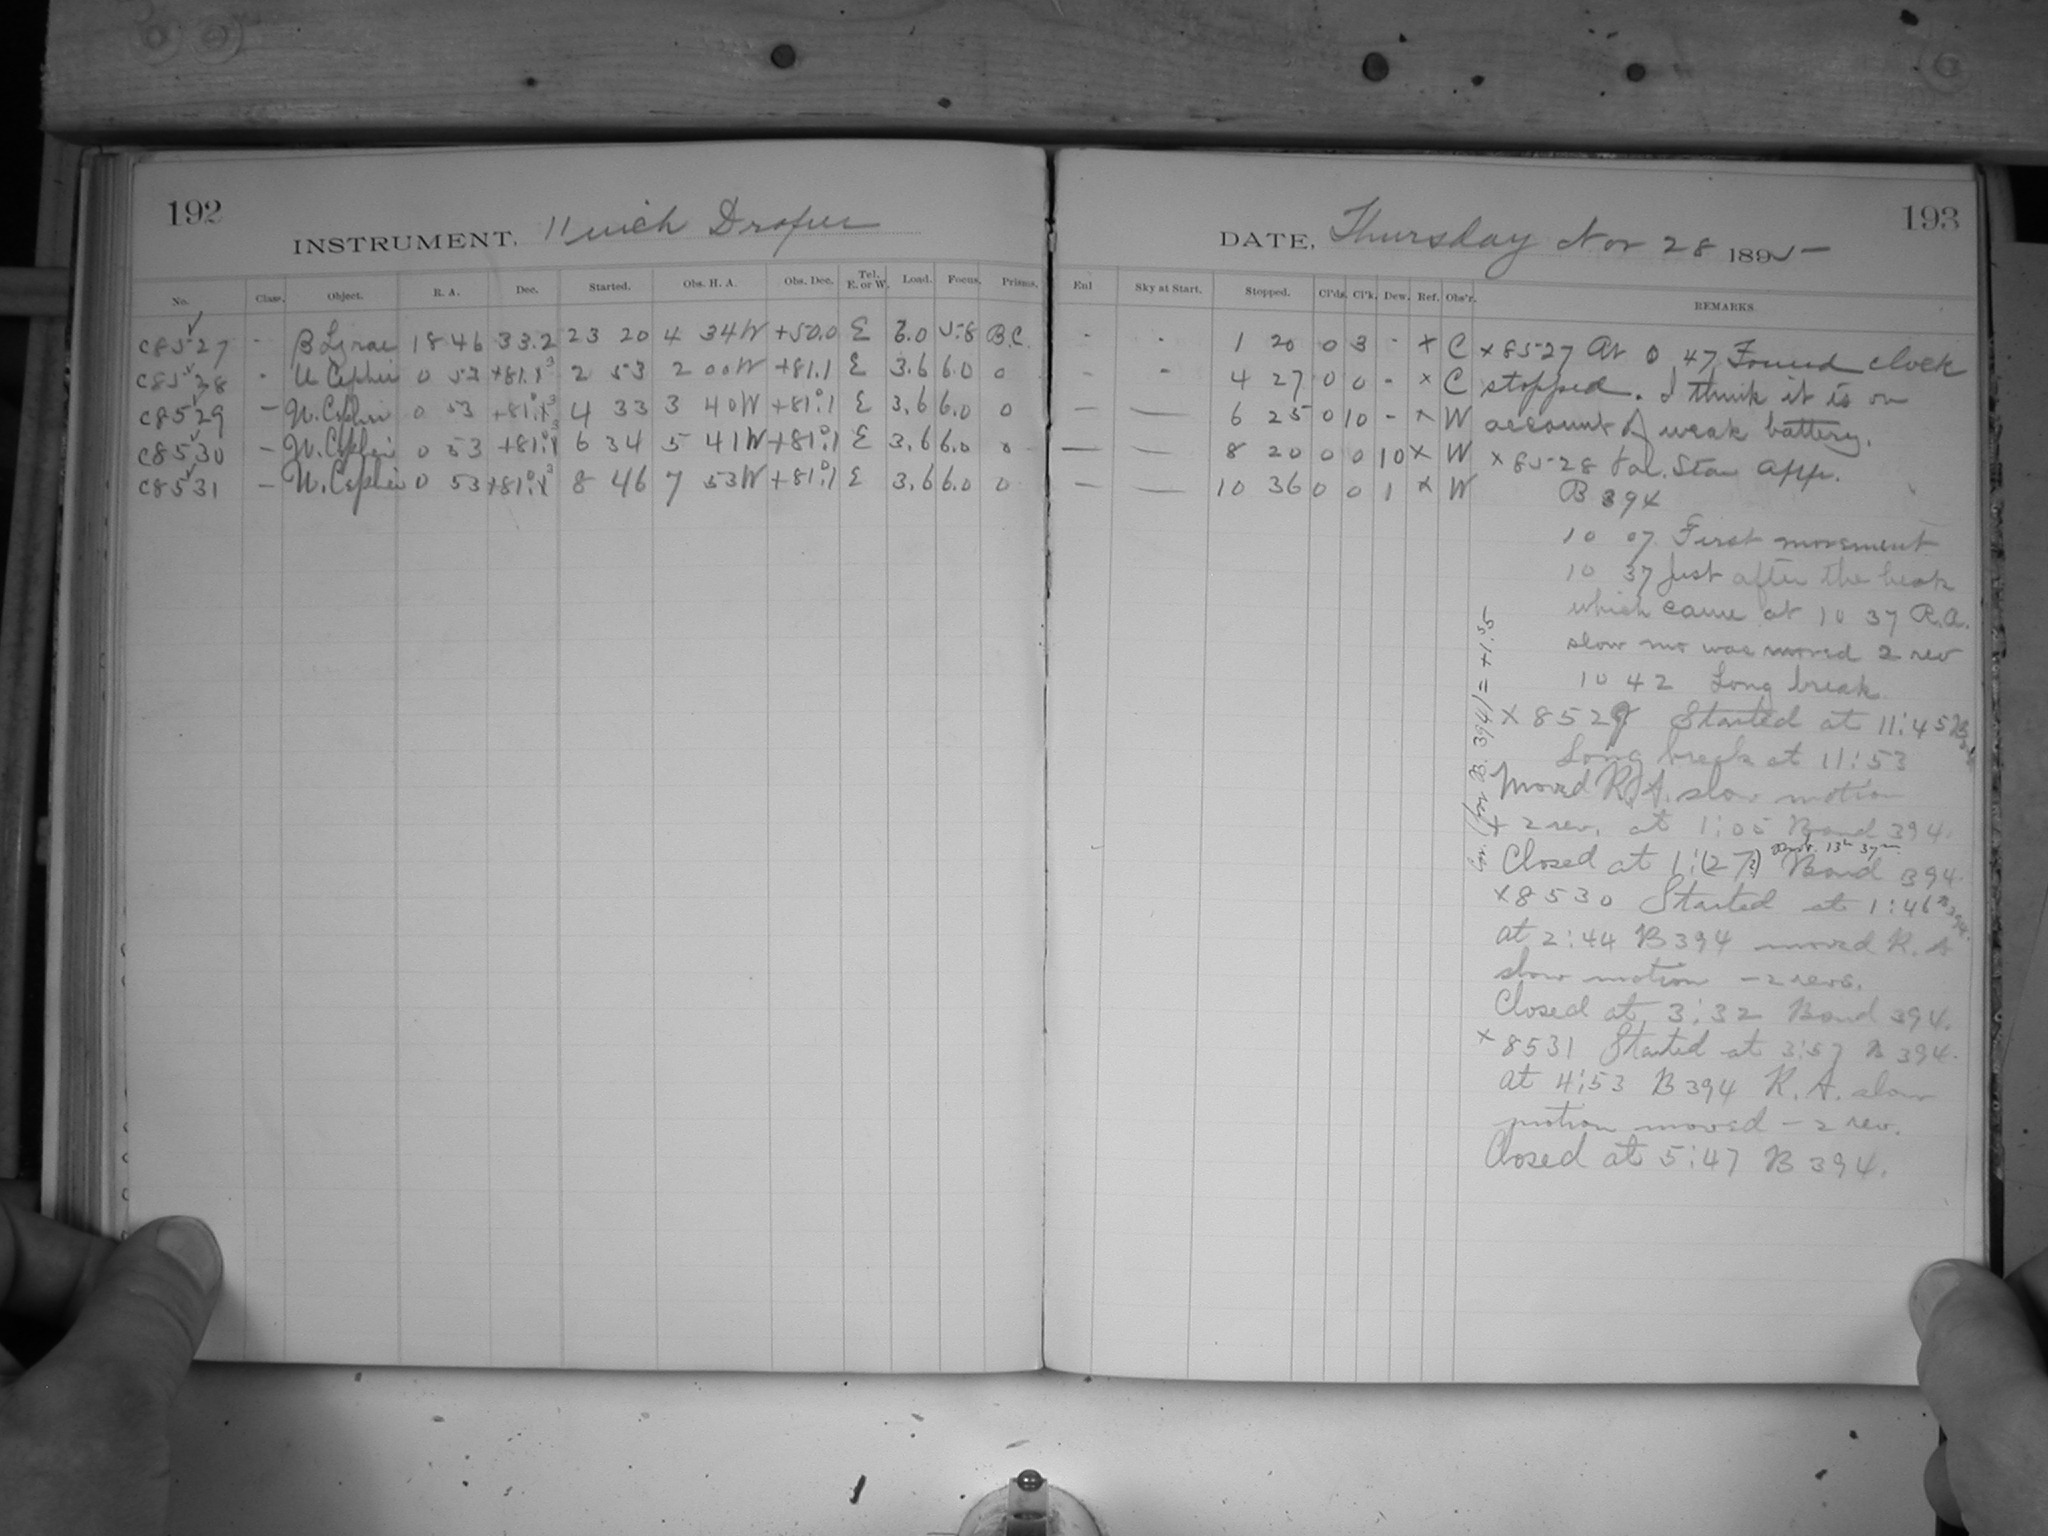 192
INSTRUMENT, 11 inch Draper
No. Class. Object. R. A. Dec. Started. Obs. H. A. Obs. Dec. Tel. E. or W. Load. Focus. Prisms.
C8527 - B Lyrae 18 46 33.2 23 20 4 34W +50.0 E 6.0 5.8 B.C.
C8528 - U Cephei 0 53 +81.1 3 2 53 2 00W +81.1 E 3.6 6.0 0
C8529 - U. Cephei 0 53 +81°.1 3 4 33 3 40W +81°.1 E 3.6 6.0 0
C8530 - U. Cephei 0 53 +81°.1 3 6 34 5 41W +81°.1 E 3.6 6.0 0
C8531 - U. Cephei 0 53 +81°.1 3 8 46 7 53W +81°.1 E 3.6 6.0 0
193
DATE, Thursday Nov 28 1895
Exl Sky at Start. Stopped. Cl'ds. Cl'k. Dew. Ref. Obs'r. REMARKS
- - 1 20 0 3 - x C
- - 4 27 0 0 - x C
- - 6 25 0 10 - x W
- - 8 20 0 0 10 x W
- - 10 36 0 0 1 x W
x 8527 At 0 47 Found clock
stopped. I think it is on
account of weak battery.
x 8528 Star App.
B 394
10 07 First movement
10 37 Just after the break
which came at 10 37 R.A.
slow mo was moved 2 rev
10 42 Long break
x 8529 Started at 11:45 B
Long break at 11:53
Moved R.A. slow motion
+ 2 rev. at 1:05 Bond 394.
Closed at 1:(27?) Bond 394.
13h 37m
x 8530 Started at 1:46 B 394.
at 2:44 B 394 moved R. A
slow motion - 2 revs.
Closed at 3:32 Bond 394.
x 8531 Started at 3:57 B 394.
at 4:53 B 394 R. A. slow
motion moved - 2 rev.
Closed at 5:47 B 394.
(for B. 394) = +1.55